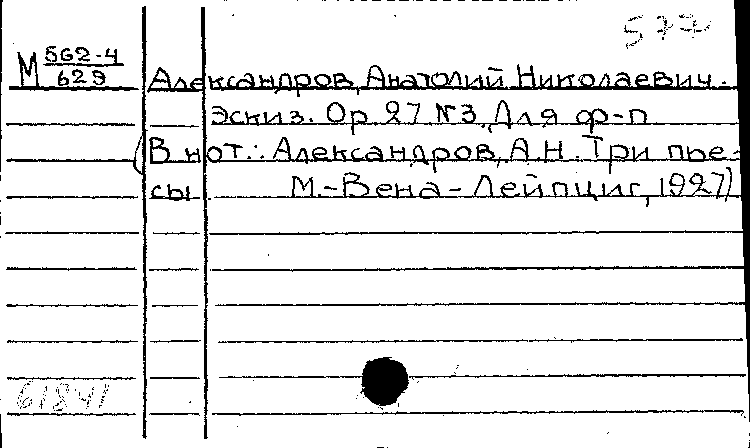 577
М 562-4/629
Александров, Анатолий Николаевич.
Эскиз. Ор. 27 №3. Для ф-п
(В нот.: Александров, А.Н. Три пье-
сы М.-Вена-Лейпциг, 1927)
61841